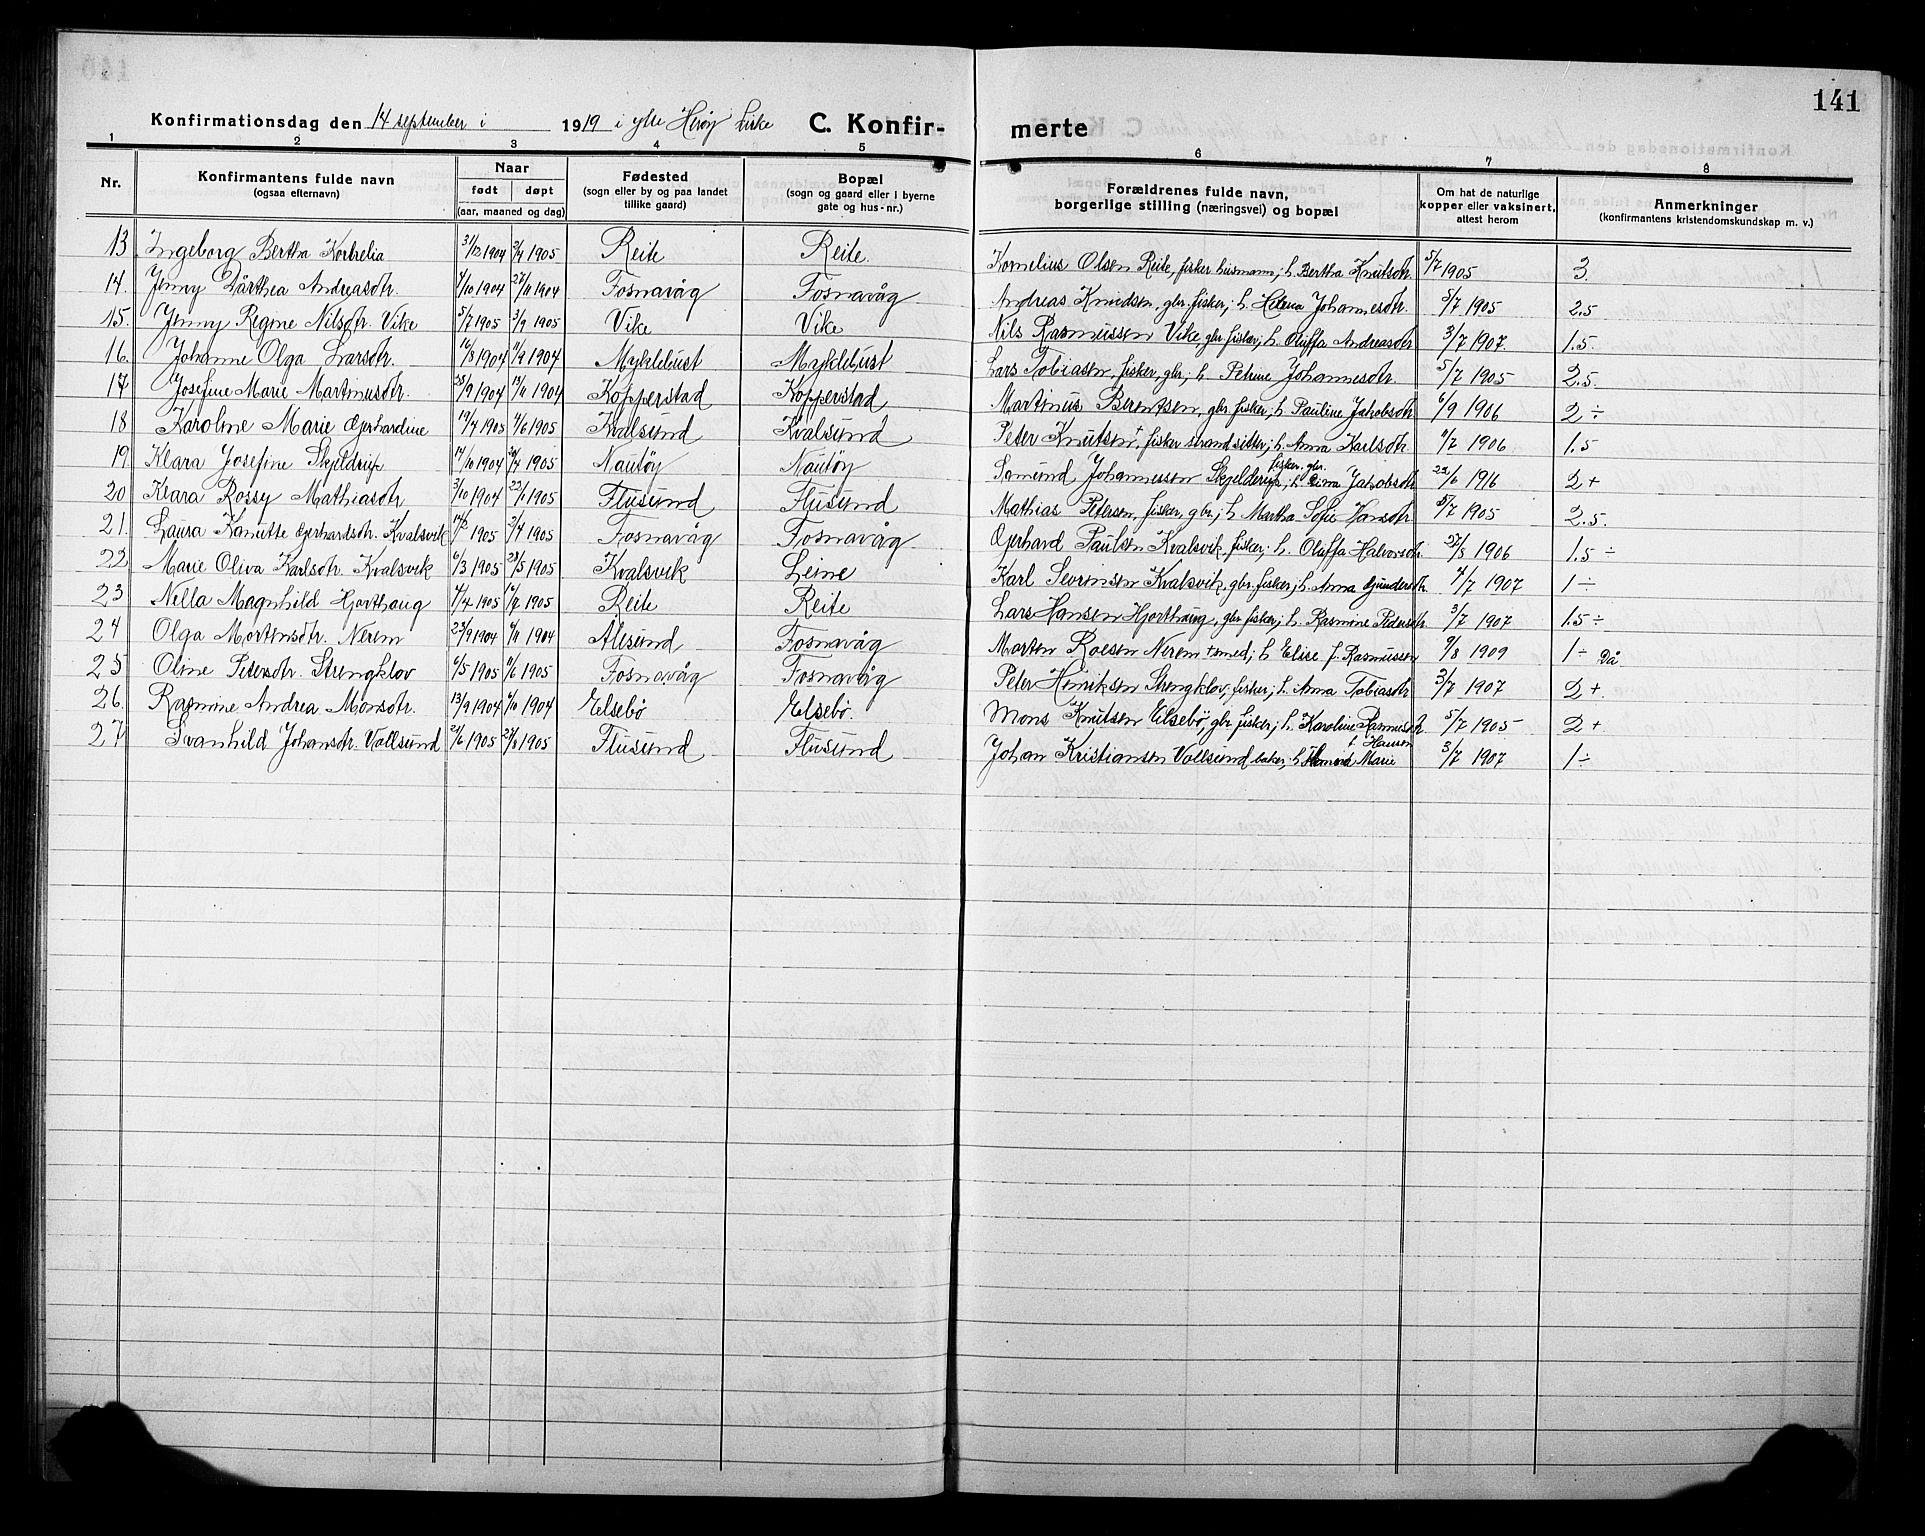 141
Konfirmationsdag den 14 september i 1919 i ytre Herøy kirke C. Konfir- merte
1 2 3 4 5 6 7 8
Nr. Konfirmantens fulde navn (ogsaa efternavn) Naar født døpt (aar, maaned og dag) Fødested (sogn eller by og paa landet tillike gaard) Bopæl (sogn og gaard eller i byerne gate og hus-nr.) Forældrenes fulde navn, borgerlige stilling (næringsvei) og bopæl Om hat de naturlige kopper eller vaksinert, attest herom Anmerkninger (konfirmantens kristendomskundskap m. v.)
13 Ingeborg Bertha Kornelia 31/12 1904 2/4 1905 Reite Reite. Kornelius Olsen Reite, fisker husmann; h. Bertha Knutsdtr. 5/7 1905 3.
14. Jenny Dårthea Andreasdtr. 4/10 1904 27/11 1904 Fosnavåg Fosnavåg Andreas Knudsen, gbr. fisker; h. Helena Johannesdtr 5/7 1905 2.5
15. Jenny Regine Nilsdtr. Vike 5/7 1905 3/9 1905 Vike Vike Nils Rasmussen Vike, gbr. fisker; h. Oluffa Andreasdtr 3/7 1907. 1.5.
16. Johanne Olga Larsdtr. 16/8 1904 11/9 1904 Myklebust Myklebust Lars Tobiasen, fisker, gbr; h. Petrine Johannesdtr. 5/7 1905 2.5.
17 Josefine Marie Martinusdtr. 28/9 1904 13/11 1904 Kopperstad Kopperstad Martinus Berentsen, gbr. fisker; h. Pauline Jakobsdtr 6/9 1906 2 ÷
18 Karoline Marie Gerhardine 19/4 1905 4/6 1905 Kvalsund Kvalsund Peter Knutsen +, fisker strandsitter; h. Anna Karlsdtr. 4/7 1906 1.5
19 Klara Josefine Skjeldrup 14/10 1904 1905 Nautøy Nautøy Somund Johannessen Skjelderup, fisker, gbr. h. Jakobsdtr 22/6 1916 2 +
20 Klara Rossy Mathiasdtr 3/10 1904 22/1 1905 Flusund Flusund Mathias Petersen, fisker, gbr.; h. Martha Sofie Hansdtr 5/7 1905 2.5.
21. Laura Kanutte Gerhardsdtr. Kvalsvik 14/2 1905 2/4 1905 Fosnavåg Fosnavåg. Gerhard Paulsen Kvalsvik, fisker; h. Oluffa Halvorsdtr. 27/8 1906 1.5 ÷
22 Marie Oliva Karlsdtr. Kvalsvik 6/3 1905 28/5 1905 Kvalsvik Leine Karl Severinsen Kvalsvik, gbr. fisker; h. Anna Gundersdtr. 4/7 1907 1 ÷
23 Nella Magnhild Hjorthaug 4/4 1905 1905 Reite Reite Lars Hansen Hjorthaug, gbr. fisker; h. Rasmine Pedersdtr 3/7 1907 1.5 ÷
24 Olga Mortensdtr. Nerem 23/9 1904 6/11 1904 Alesund Fosnavåg Morten Roesen Nerem smed; h. Elise f. Rasmussen 9/8 1909 1 ÷ Då
25 Oline Petersdtr. Strengklov 6/5 1905 11/6 1905 Fosnavåg Fosnavåg Peter Henriksen Strengklov, fisker; h. Anna Tobiasdtr 3/7 1907 2 +.
26. Rasmine Andrea Monsdtr. 13/9 1904 1904 Elsebø Elsebø. Mons Knutsen Elsebø, gbr. fisker; h. Karoline Rasmusdtr 5/7 1905 2 +
27 Svanhild Johansdtr. Vollsund 21/6 1905 27/8 1905 Flusund Flusund Johan Kristiansen Vollsund baker; h. Marie f. Hansen 3/7 1907 1 ÷